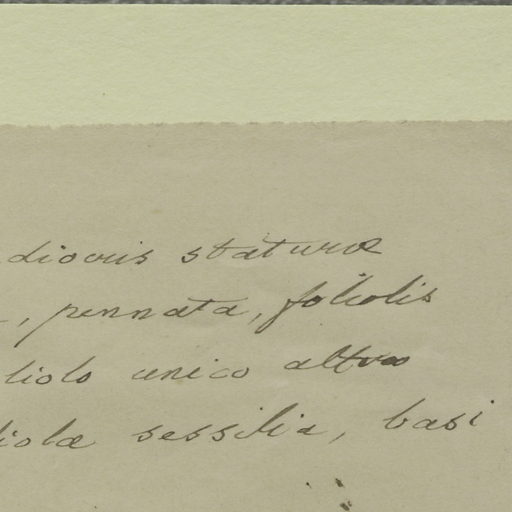 diocris staturæ
, pennata, foliolis
liolo unico
liolæ sessilia, basi